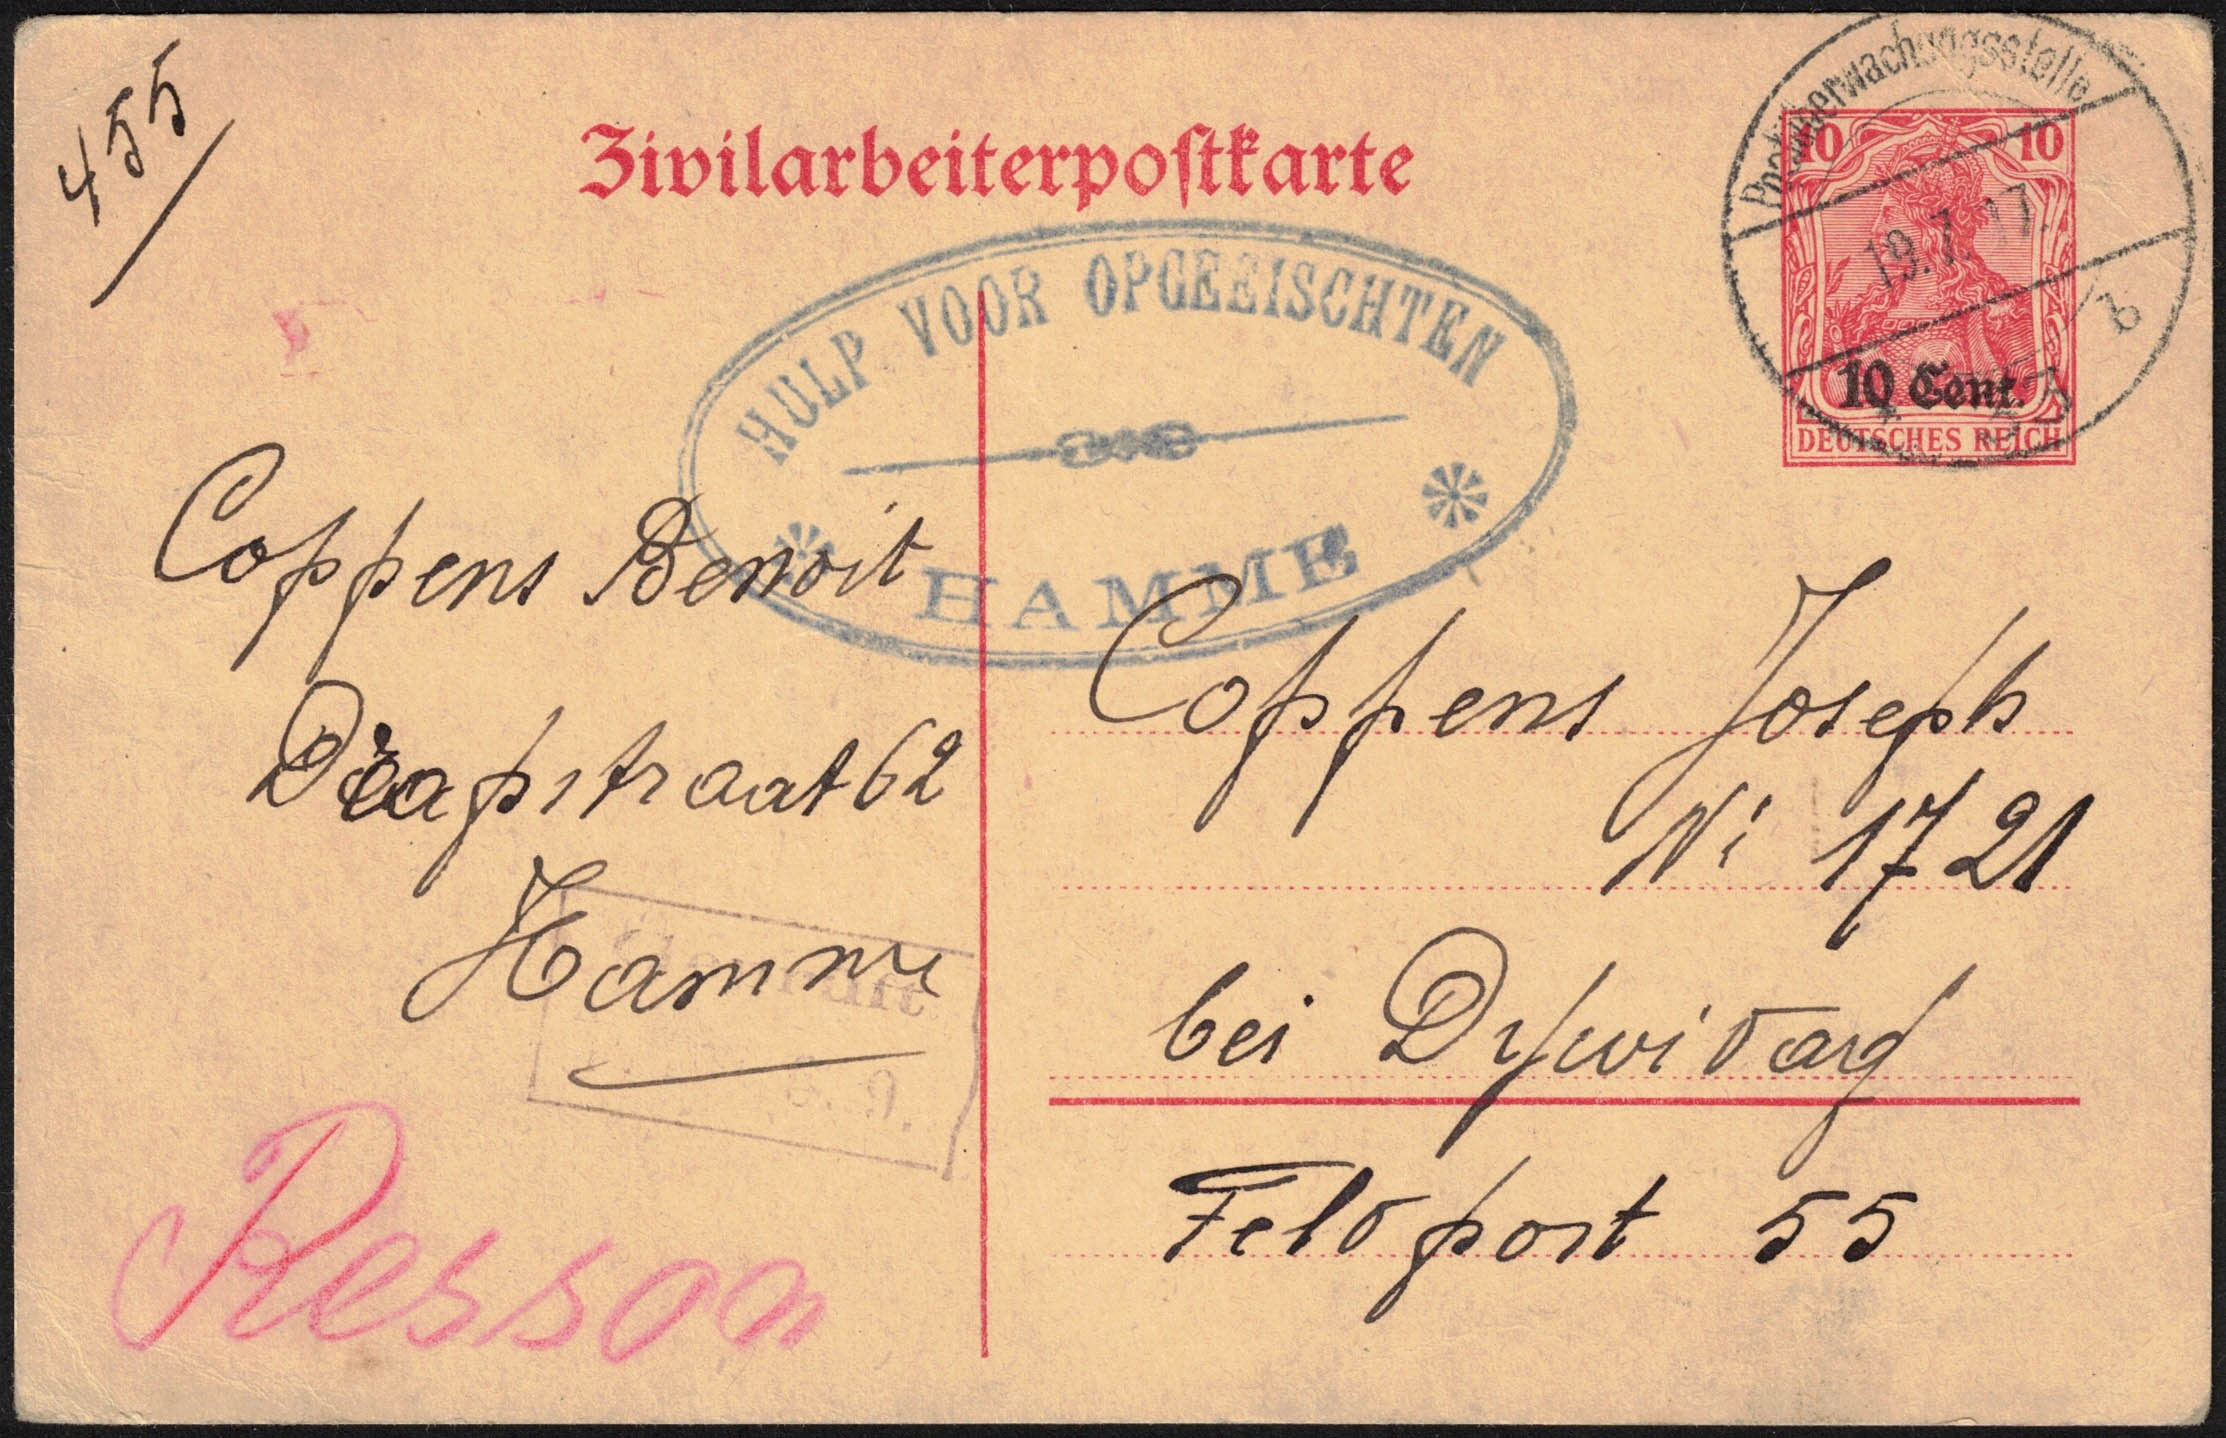 455
Zivilarbeiterpostkarte
Postüberwachungsstelle
19.7.17.
b
10 10
10 Cent.
DEUTSCHES REICH
HULP VOOR OPGEEISCHTEN
HAMME
Coppens Benoit
Drapstraat 62
Hamme
Coppens Joseph
N: 1721
bei Dyſwidag
Feldpost 55
Resson